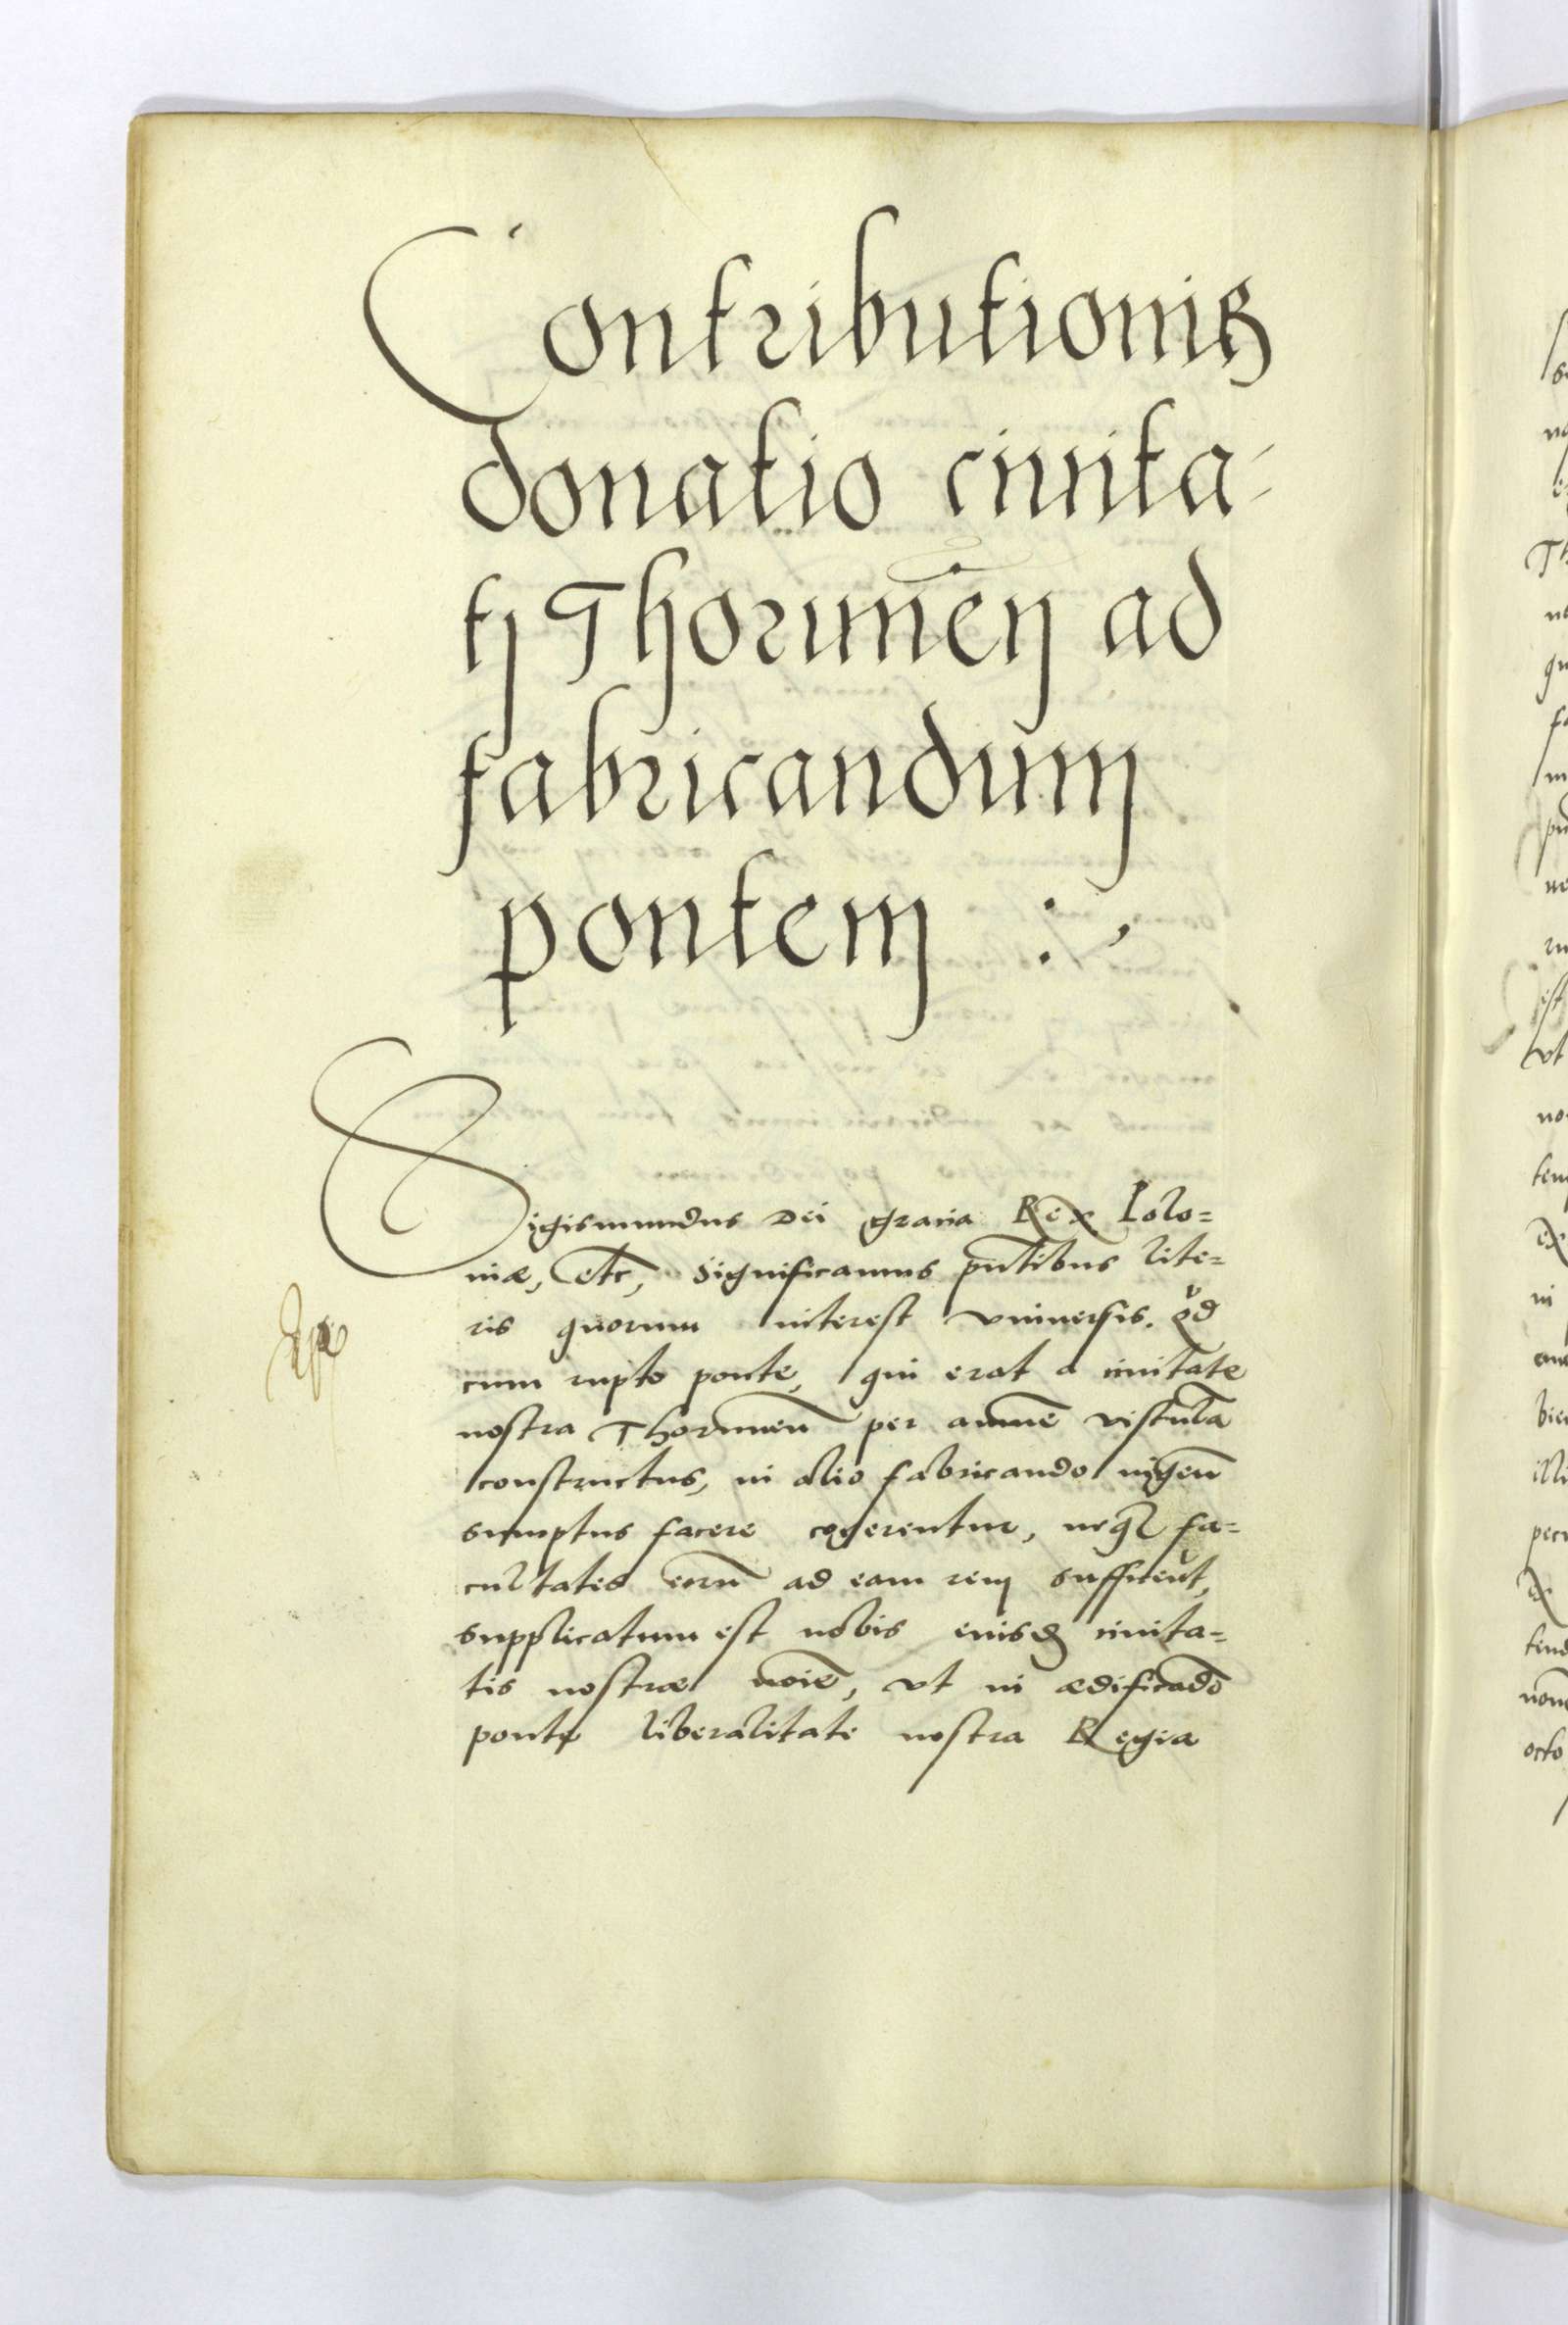 Contributionis
donatio civita-
tj Thorunēn ad
fabricandum
pontem :,
Sigismundus Dei gratia Rex Polo=
niæ, etc, Significamus pñtibus lite=
ris quorum interest vniuersis. qd
cum rupto ponte, qui erat a ciuitate
nostra Thorunen̄ per amnē vistula
constructus, in alio fabricando ingen̄
sumptus facere cogerentur, neq fa=
cultates eorū ad eam rem sufficeret,
supplicatum est nobis eiusd ciuita=
tis nostræ noīe, vt in ædificādo
ponte liberalitate nostra Regia